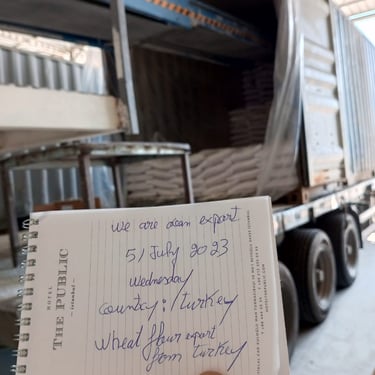 we are dan export
5/ July 2023
Wednesday
country: turkey
wheat flour export
from turkey
HOTEL
THE PUBLIC
istanbul